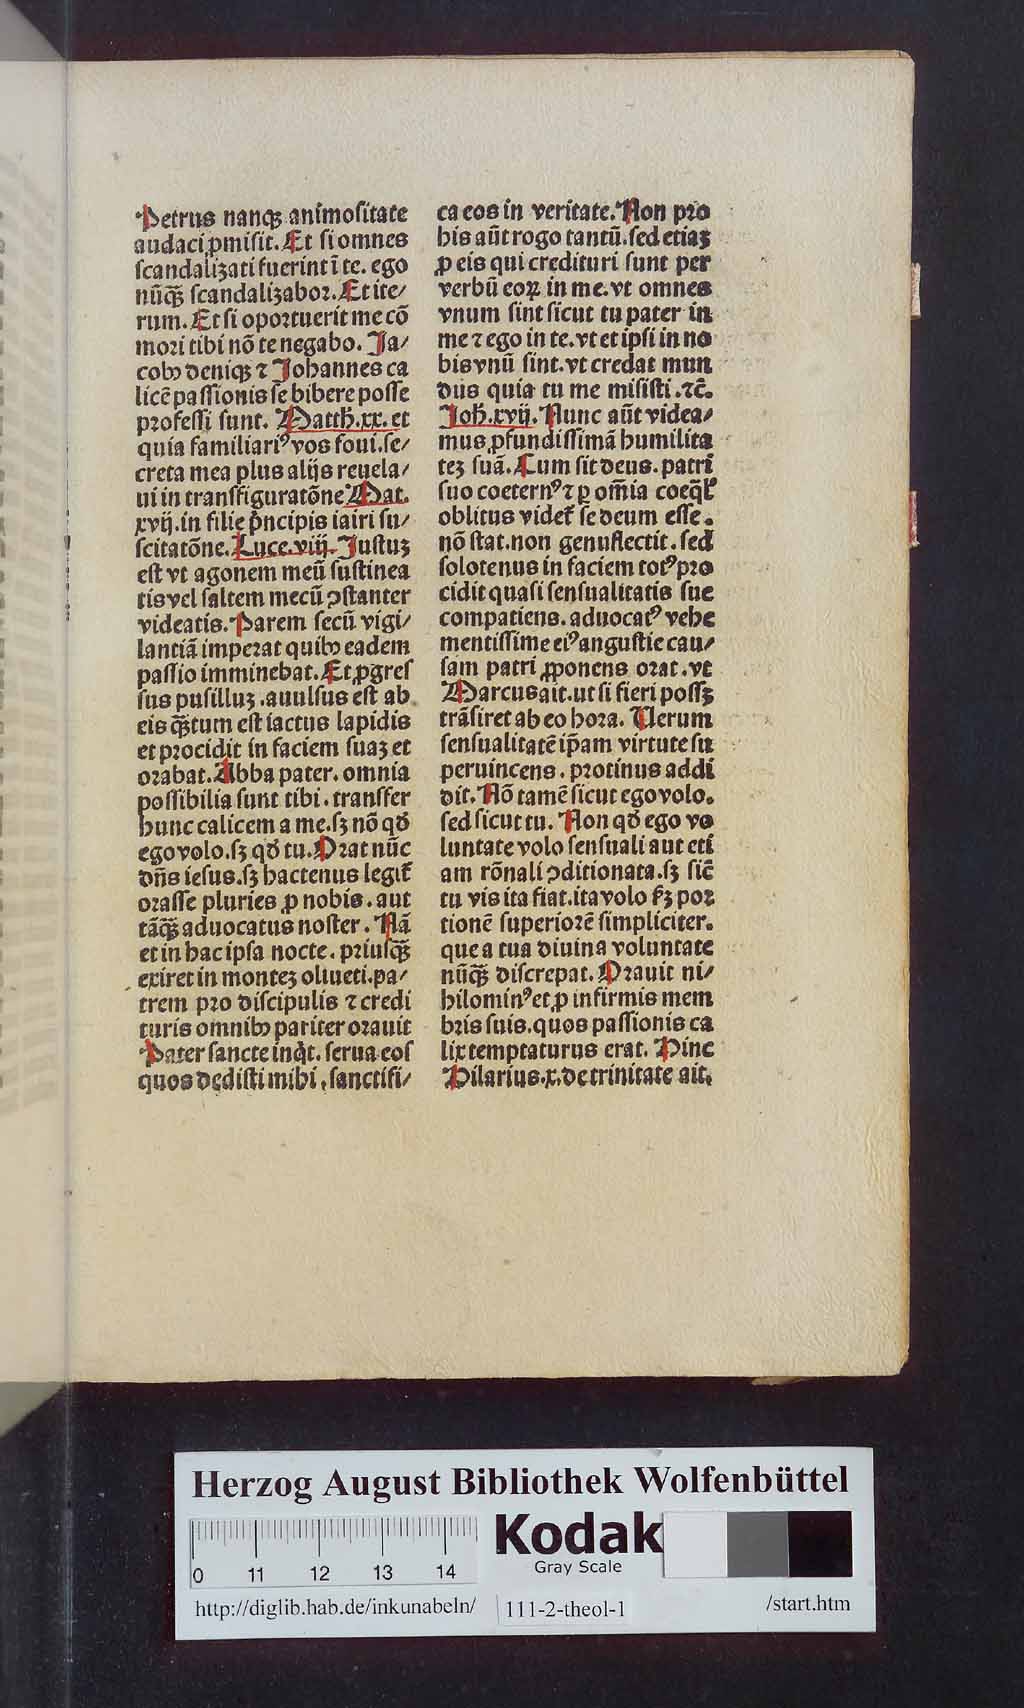 Petrus nanqꝫ animositate
audaci ꝓmisit. Et si omnes
scandalizati fuerint ī te. ego
nūqꝫ̃ scandalizabor. Et ite/
rum. Et si oportuerit me cō
mori tibi nō te negabo. Ja/
cobꝰ deniqꝫ ⁊ Johannes ca
licē passionis se bibere posse
professi sunt. Matth̄.xx. et
quia familiariꝰ vos foui. se/
creta mea plus alijs reuela/
ui in transfiguratōne Mat.
xvij. in filie pͥncipis iairi su/
scitatōne. Luce.viij. Justuꝫ
est vt agonem meū sustinea
tis vel saltem mecū ꝯstanter
videatis. Parem secū vigi/
lantiā imperat quibꝰ eadem
passio imminebat. Et ꝓgres
sus pusilluꝫ. auulsus est ab
eis qꝫ̃tum est iactus lapidis
et procidit in faciem suaꝫ et
orabat. Abba pater. omnia
possibilia sunt tibi. transfer
hunc calicem a me. sꝫ nō qd̛
ego volo. sꝫ qd̛ tu. Orat nūc
dn̄s iesus. sꝫ hactenus legit᷑
orasse pluries ꝓ nobis. aut
tāqꝫ̃ aduocatus noster. Nā
et in hac ipsa nocte. priusqꝫ̃
exiret in monteꝫ oliueti. pa/
trem pro discipulis ⁊ credi
turis omnibꝰ pariter orauit
Pater sancte inqͥt. serua eos
quos dedisti mihi, sanctifi/
ca eos in veritate. Non pro
his aūt rogo tantū. sed etiaꝫ
ꝓ eis qui credituri sunt per
verbū eoꝝ in me. vt omnes
vnum sint sicut tu pater in
me ⁊ ego in te. vt et ipsi in no
bis vnū sint. vt credat mun
dus quia tu me misisti .⁊c̄.
Joh̄.xvij. Nunc aūt videa/
mus ꝓfundissimā humilita
teꝫ suā. Cum sit deus. patri
suo coeternꝰ ⁊ ꝑ om̄ia coeq̄l᷑
oblitus videt᷑ se deum esse.
nō stat. non genuflectit. sed
solotenus in faciem totꝰ pro
cidit quasi sensualitatis sue
compatiens. aduocatꝰ vehe
mentissime eiꝰ angustie cau/
sam patri ꝓponens orat. vt
Marcus ait. ut si fieri possꝫ
trāsiret ab eo hora. Verum
sensualitatē ip̄am virtute su
peruincens. protinus addi
dit. Nō tamē sicut ego volo.
sed sicut tu. Non qd̛ ego vo
luntate volo sensuali aut eti
am rōnali ꝯditionata. sꝫ sic̄
tu vis ita fiat. ita volo ẜꝫ por
tionē superiorē simpliciter.
que a tua diuina voluntate
nūqꝫ̃ discrepat. Orauit ni/
hilominꝰ et ꝓ infirmis mem
bris suis. quos passionis ca
lix temptaturus erat. Hinc
Hilarius.x. de trinitate ait,
Herzog August Bibliothek Wolfenbüttel
Kodak
Gray Scale
0 11 12 13 14
http://diglib.hab.de/inkunabeln/ 111-2-theol-1 /start.htm